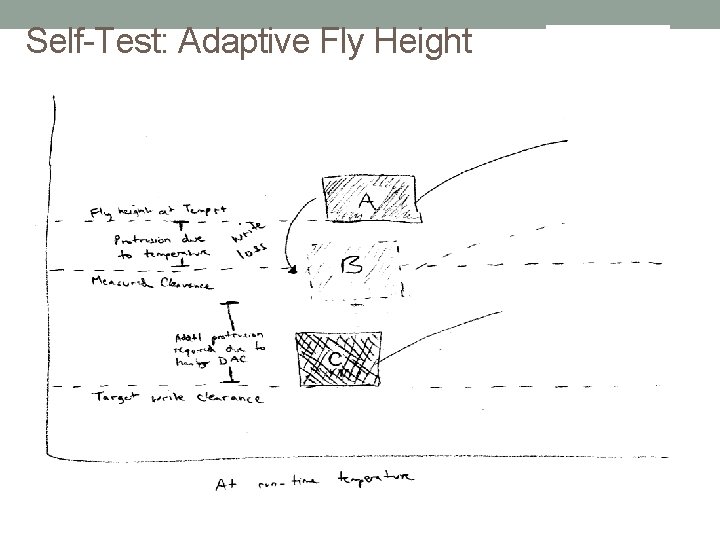 Self-Test: Adaptive Fly Height
A
Fly height at Temp
Protrusion due
to temperature
write
loss
B
Measured Clearance
Addtl protrusion
required due to
DAC
C
Target write clearance
At run-time temperature